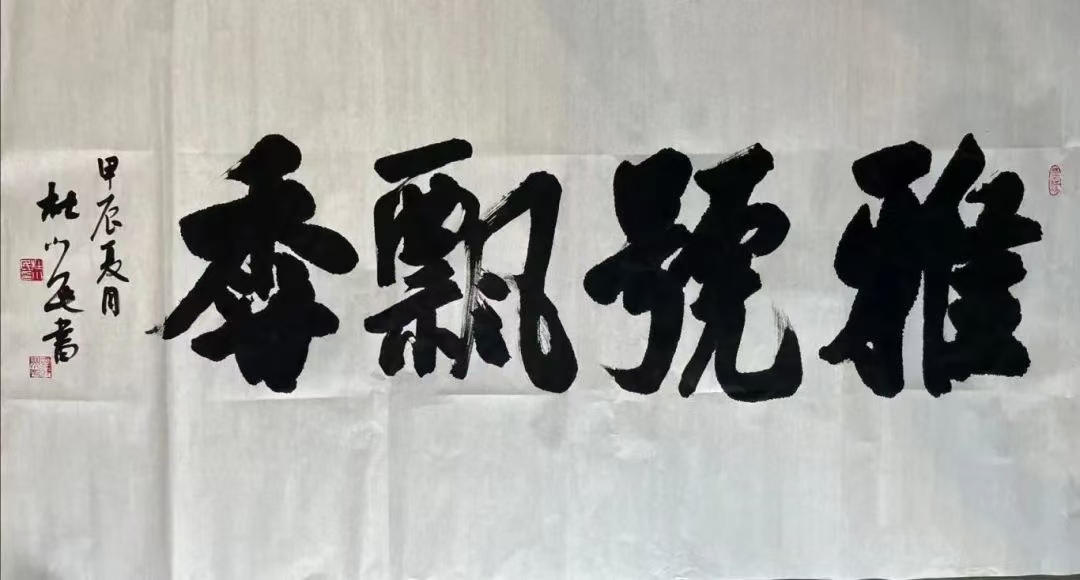 雅號飄香
甲辰夏月
杜少延書